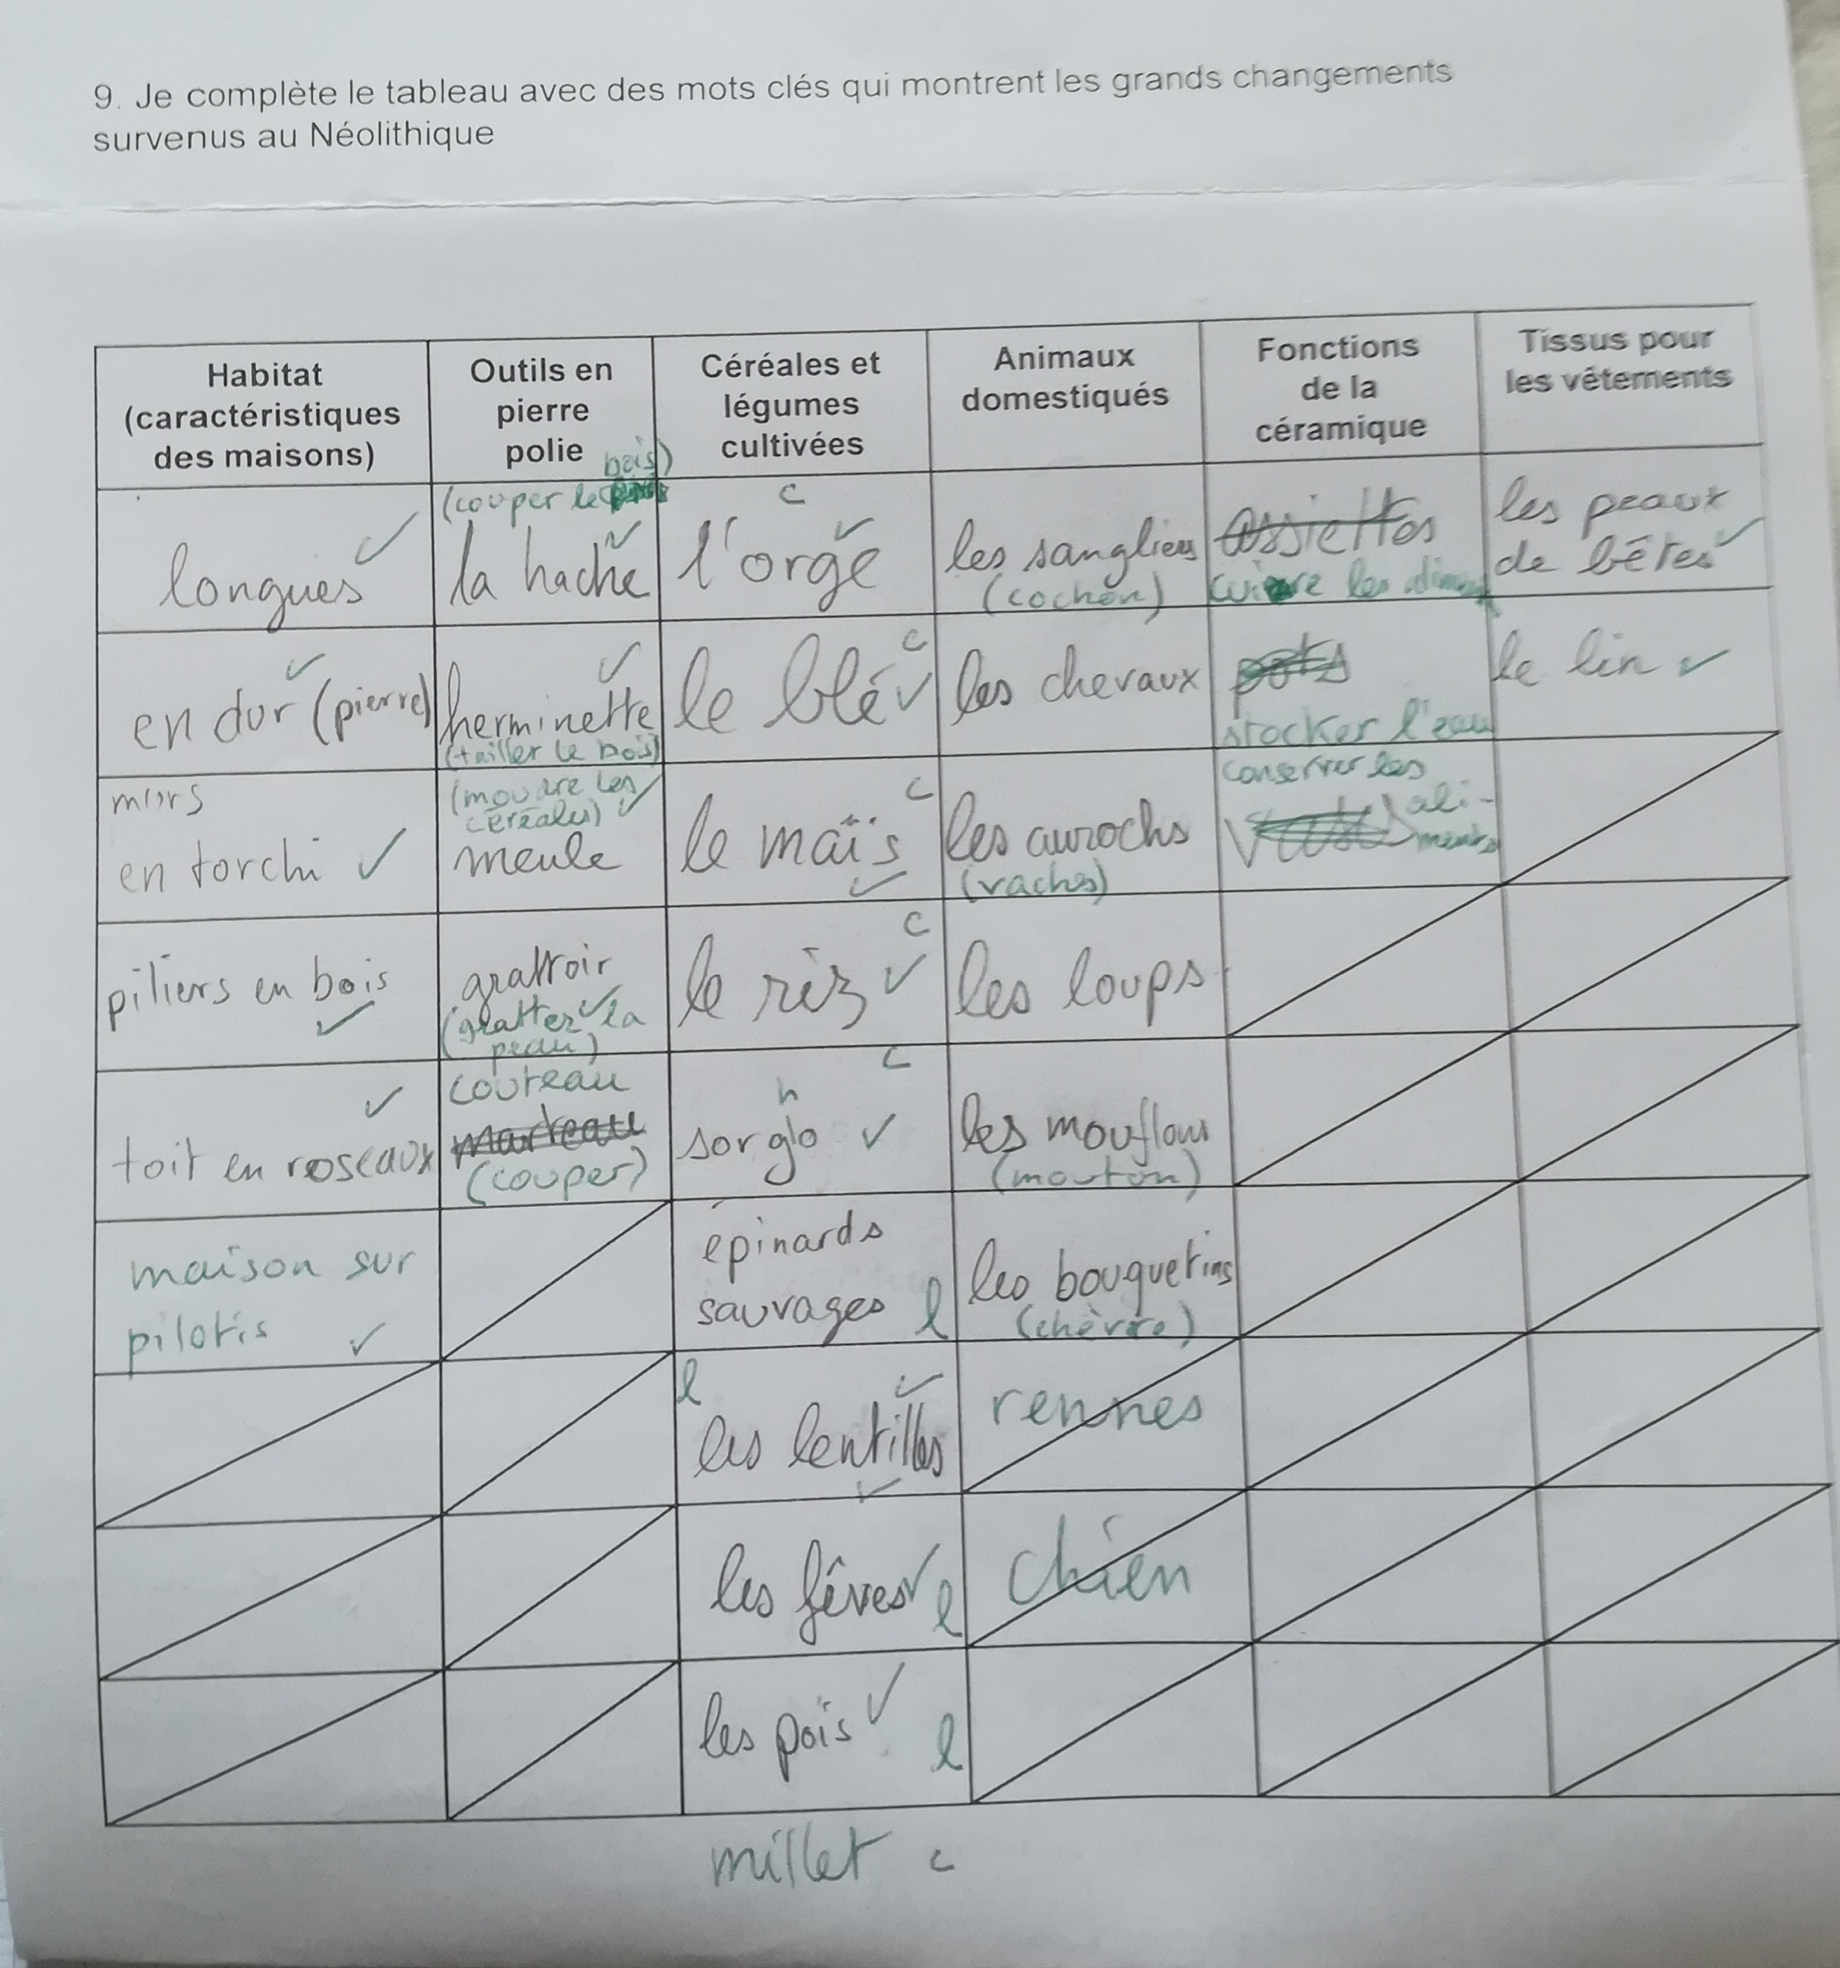 9. Je complète le tableau avec des mots clés qui montrent les grands changements
survenus au Néolithique
Habitat
(caractéristiques
des maisons)
Outils en
pierre
polie
Céréales et
légumes
cultivées
Animaux
domestiqués
Fonctions
de la
céramique
Tissus pour
les vêtements
longues
bois)
(couper le
la hache
c
l'orge
les sangliers
(cochon)
assiettes
cuire les aliments
les peaux
de bêtes
en dur (pierre)
herminette
(tailler le bois)
c
le blé
les chevaux
pots
stocker l'eau
le lin
murs
en torchi
(moudre les
céréales)
meule
c
le maïs
les aurochs
(vaches)
conserver les
ali-
ments
piliers en bois
grattoir
(gratter la
peau)
c
le riz
les loups
toit en roseaux
couteau
marteau
(couper)
c
h
sorgo
les mouflons
(mouton)
maison sur
pilotis
épinards
sauvages l
les bouquetins
(chèvre)
l
les lentilles
rennes
les fêves l
chien
les pois l
millet c